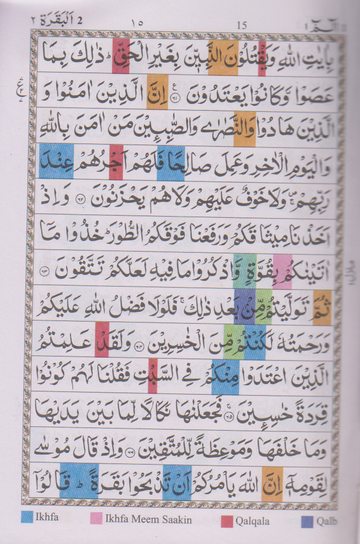 ٢ اَلْبَقَرَة 2 ١٥ 15 الٓمّٓ ١
بِاٰيٰتِ اللّٰهِ وَيَقْتُلُوْنَ النَّبِيّٖنَ بِغَيْرِ الْحَقِّ ؕ ذٰلِكَ بِمَا
عَصَوْا وَّكَانُوْا يَعْتَدُوْنَ ۝٦١ اِنَّ الَّذِيْنَ اٰمَنُوْا وَ
الَّذِيْنَ هَادُوْا وَالنَّصٰرٰى وَالصّٰبِـِٕيْنَ مَنْ اٰمَنَ بِاللّٰهِ
وَالْيَوْمِ الْاٰخِرِ وَعَمِلَ صَالِحًا فَلَهُمْ اَجْرُهُمْ عِنْدَ
رَبِّهِمْ ۚ وَلَا خَوْفٌ عَلَيْهِمْ وَلَا هُمْ يَحْزَنُوْنَ ۝٦٢ وَاِذْ
اَخَذْنَا مِيْثَاقَكُمْ وَرَفَعْنَا فَوْقَكُمُ الطُّوْرَ ؕ خُذُوْا مَآ
اٰتَيْنٰكُمْ بِقُوَّةٍ وَّاذْكُرُوْا مَا فِيْهِ لَعَلَّكُمْ تَتَّقُوْنَ ۝٦٣
ثُمَّ تَوَلَّيْتُمْ مِّنْۢ بَعْدِ ذٰلِكَ ۚ فَلَوْلَا فَضْلُ اللّٰهِ عَلَيْكُمْ
وَرَحْمَتُهٗ لَكُنْتُمْ مِّنَ الْخٰسِرِيْنَ ۝٦٤ وَلَقَدْ عَلِمْتُمُ
الَّذِيْنَ اعْتَدَوْا مِنْكُمْ فِي السَّبْتِ فَقُلْنَا لَهُمْ كُوْنُوْا
قِرَدَةً خٰسِـِٕيْنَ ۝٦٥ فَجَعَلْنٰهَا نَكَالًا لِّمَا بَيْنَ يَدَيْهَا
وَمَا خَلْفَهَا وَمَوْعِظَةً لِّلْمُتَّقِيْنَ ۝٦٦ وَاِذْ قَالَ مُوْسٰى
لِقَوْمِهٖٓ اِنَّ اللّٰهَ يَاْمُرُكُمْ اَنْ تَذْبَحُوْا بَقَرَةً ؕ قَالُوْٓا
Ikhfa Ikhfa Meem Saakin Qalqala Qalb